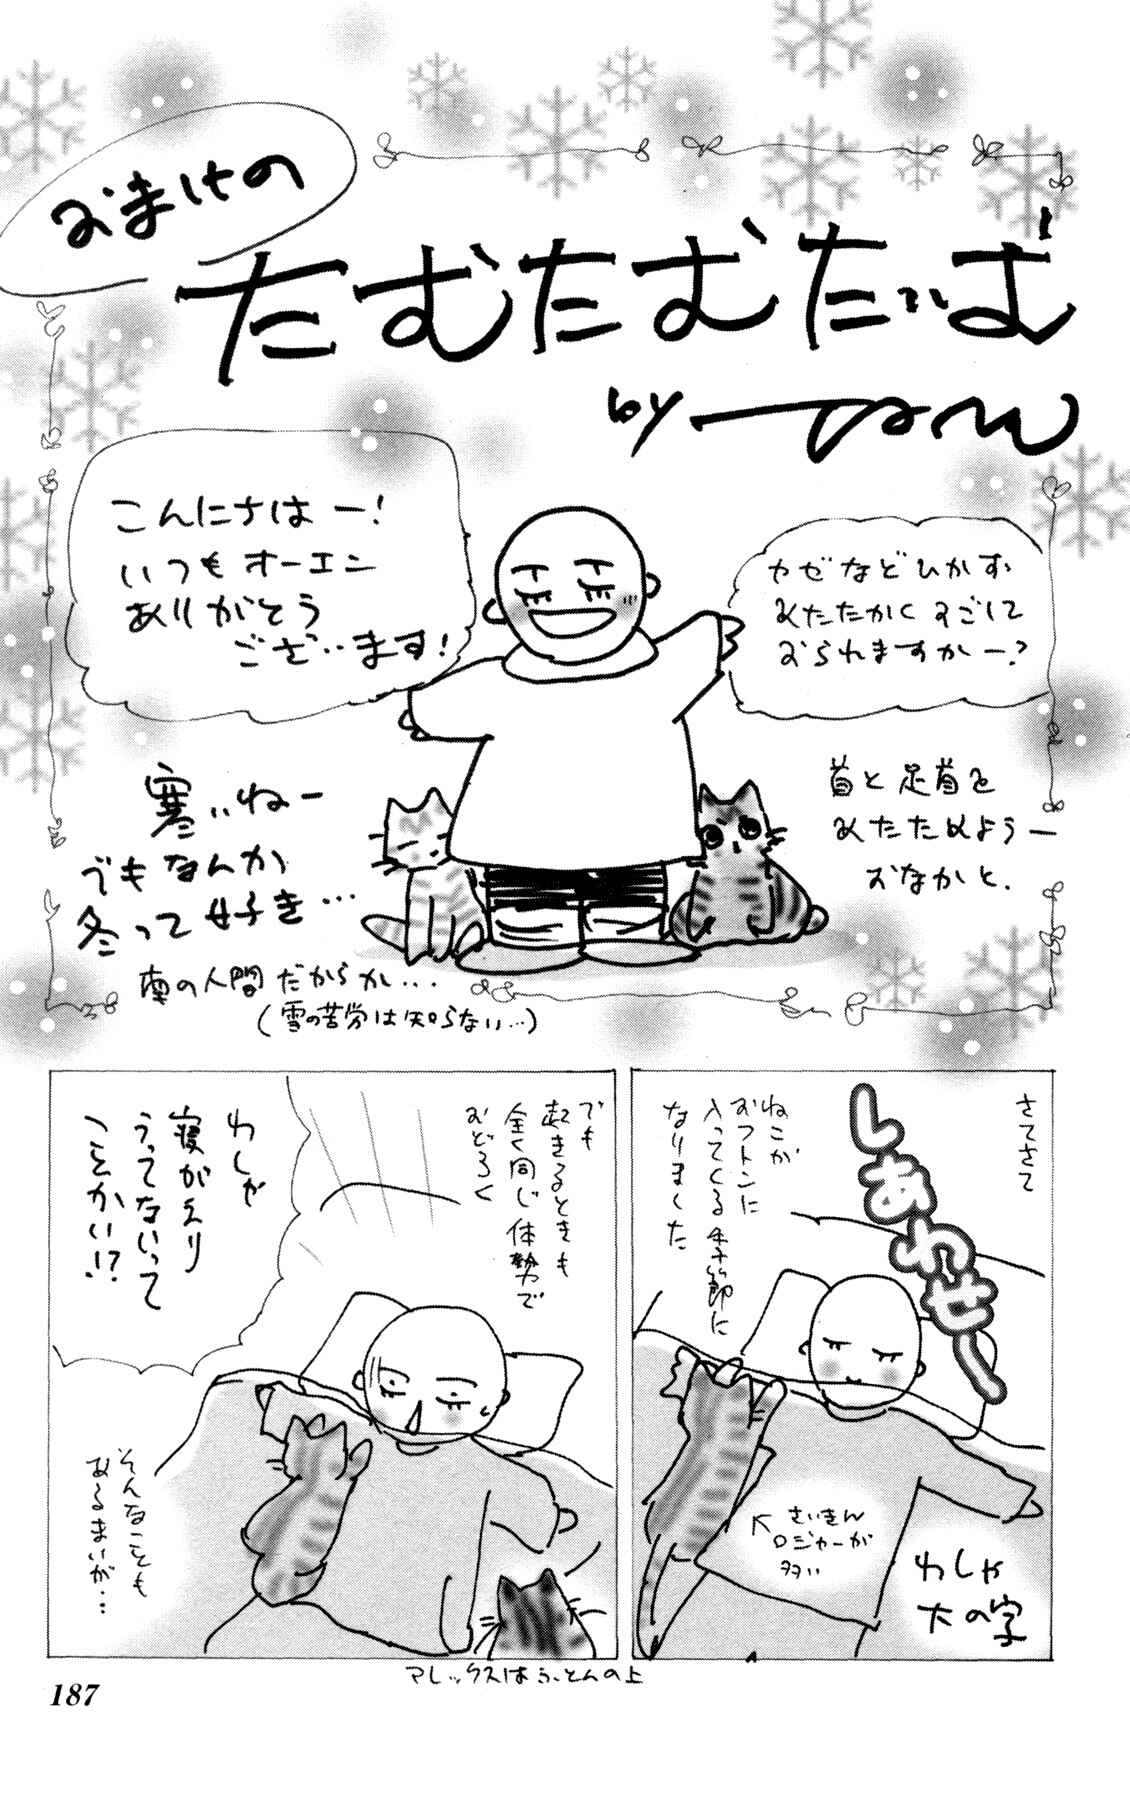 おまけの
たむたむたいむ
by
こんにちはー!
いつもオーエン
ありがとう
ございます!
カゼなどひかず、
あたたかくすごして
おられますかー?
寒いねー
でもなんか
冬って好き…
南の人間だからか…
(雪の苦労は知らない…)
首と足首を
あたためよう―
おなかと、
さてさて
しあわせー
ねこが
おフトンに
入ってくる季節に
なりました
さいきん
ロジャーが
多い
わしゃ
大の字
でも
起きるときも
全く同じ体勢で
おどろく
わしゃ
寝がえり
うってないって
ことかい!?
そんなことも
あるまいが…
アレックスはふとんの上
187